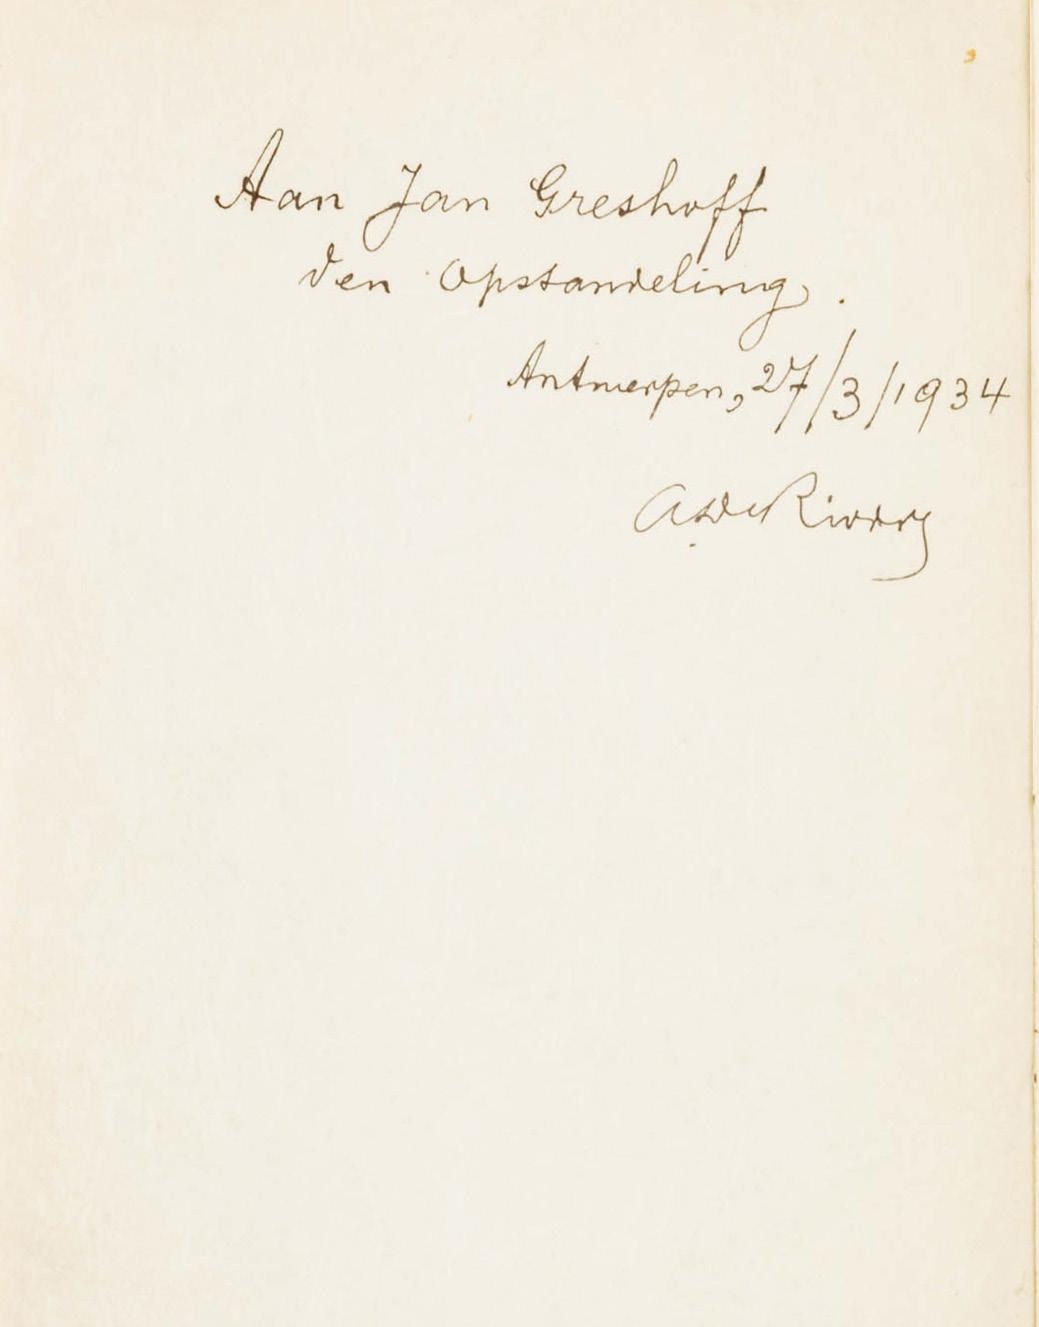 Aan Jan Greshoff
den Opstandeling.
Antwerpen, 27/3/1934